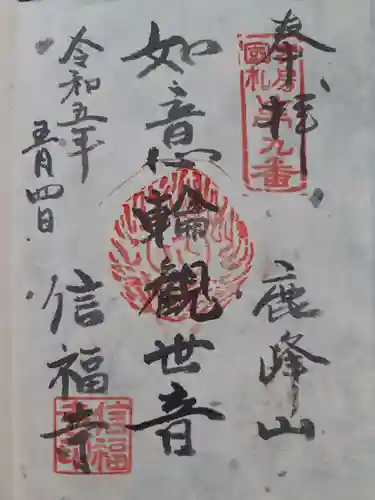 奉拝
安房
國札
第九番
鹿峰山
如意輪觀世音
令和五年
五月四日
信福寺
信福
寺印